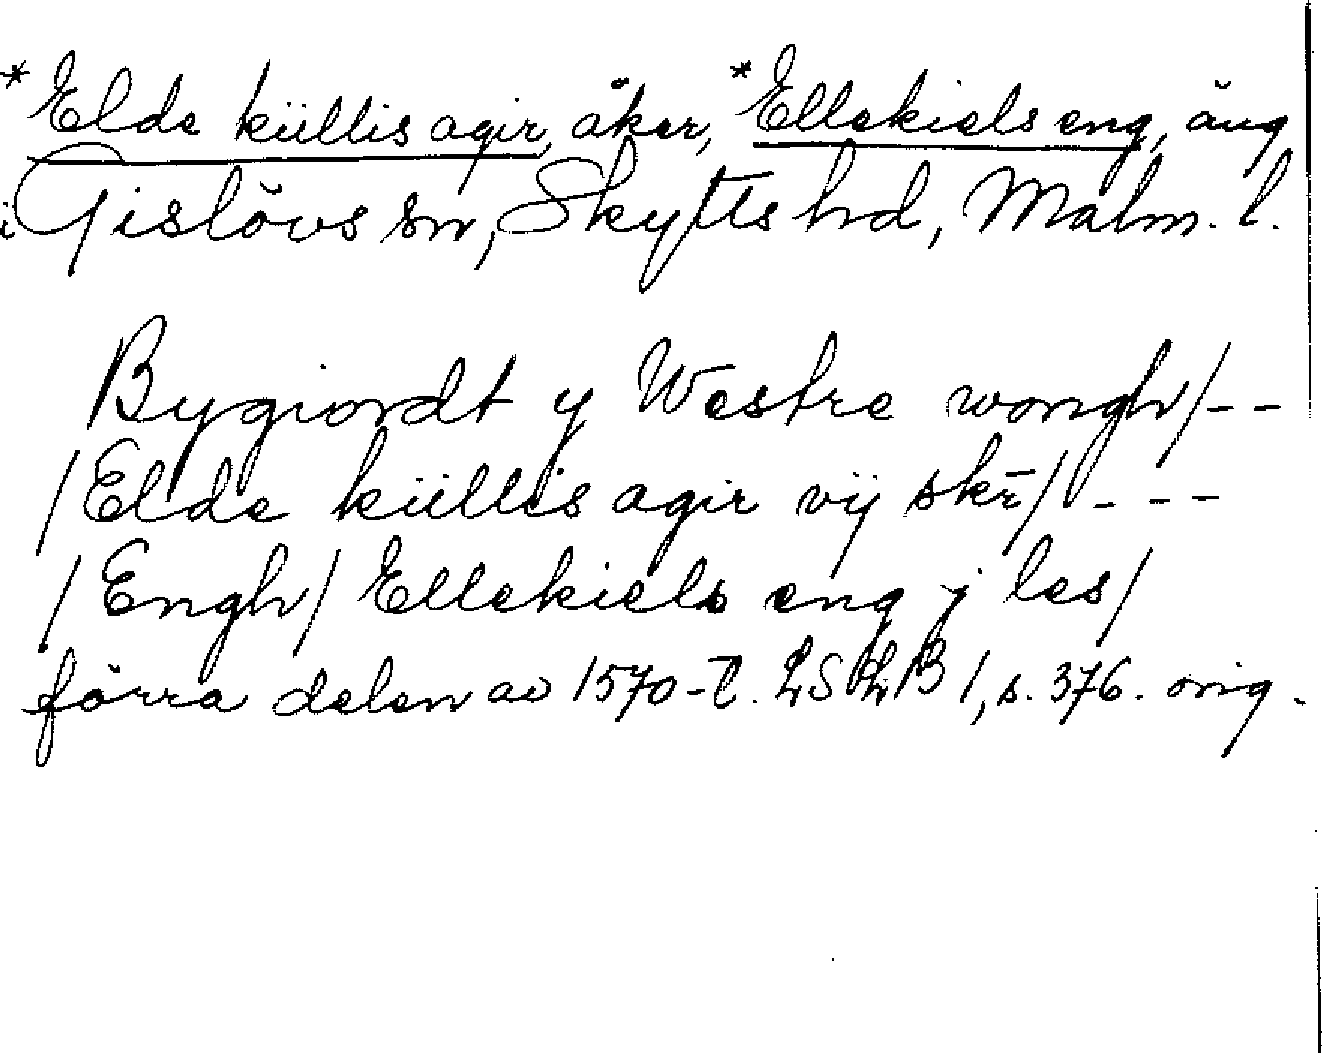 *Elde küllis agir, åker, *Ellekiels eng, äng
i Gislövs sn, Skytts hd, Malm. l.
Bygiordt y Westre wongh/- -
/Elde küllis agir vij skr̄/ - - -
/Engh/ Ellekiels eng j les/
förra delen av 1570-t. LSLB 1, s. 376. orig.